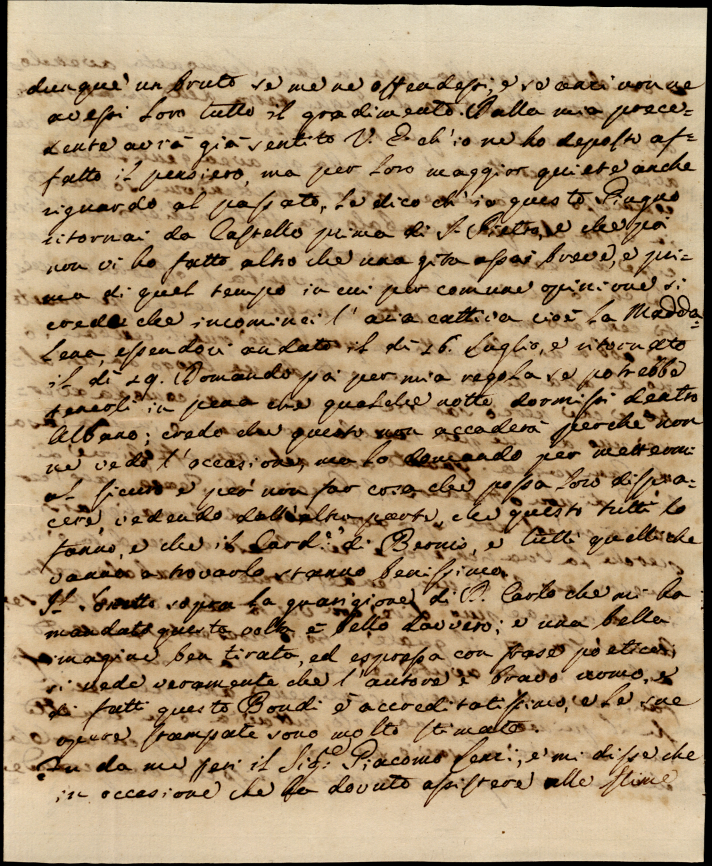 dunque un bruto se me ne offendessi, e se anzi non ne
avessi Loro tutto il gradimento. Dalla mia prece=
dente avrà già sentito V. E. ch'io ne ho deposto af=
fatto il pensiero, ma per Loro maggior quiete anche
riguardo al passato, Le dico ch'io questo Giugno
ritornai da Castello prima di S. Pietro, e che poi
non vi ho fatto altro che una gita assai breve, e pri=
ma di quel tempo in cui per comune opinione si
crede che incominci l'aria cattiva cioè la Madda=
lena, essendovi andato il dì 16. Luglio, e ritornato
il dì 19. Domando poi per mia regola se potrebbe
tenerli in pena che qualche notte dormissi dentro
Albano; credo che questo non accaderà perchè non
ne vedo l'occasione, ma lo domando per mettermi
al sicuro e però non far cosa che possa Loro dispia=
cere, vedendo dall'altra parte, che questo tutti lo
fanno, e che il Card.e di Bernis, e tutti quelli che
vanno a trovarlo stanno benissimo.
Il Sonetto sopra la guarigione di P. Carlo che mi ha
mandato questa volta è bello davvero; è una bella
imagine ben tirata, ed espressa con frase poetica;
si vede veramente che l'autore è bravo uomo, e
di fatti questo Bondi è accreditatissimo, e le sue
opere stampate sono molto stimate.
Fu da me jeri il Sig.r Giacomo e mi disse che
in occasione che ha dovuto assistere alle stime